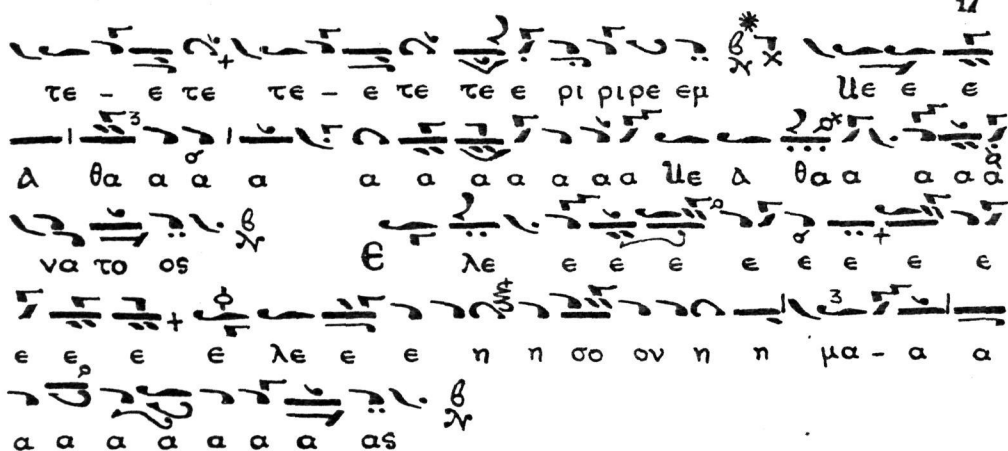 τε - ε τε τε - ε τε τε ε ρι ριρε εμ με ε ε
Α θα α α α α α α α α αα με Α θα α α αα
να το ος Ε λε ε ε ε ε ε ε ε ε
ε ε ε ε λε ε ε η η σο ον η η μα - α α
α α α α α α α ας